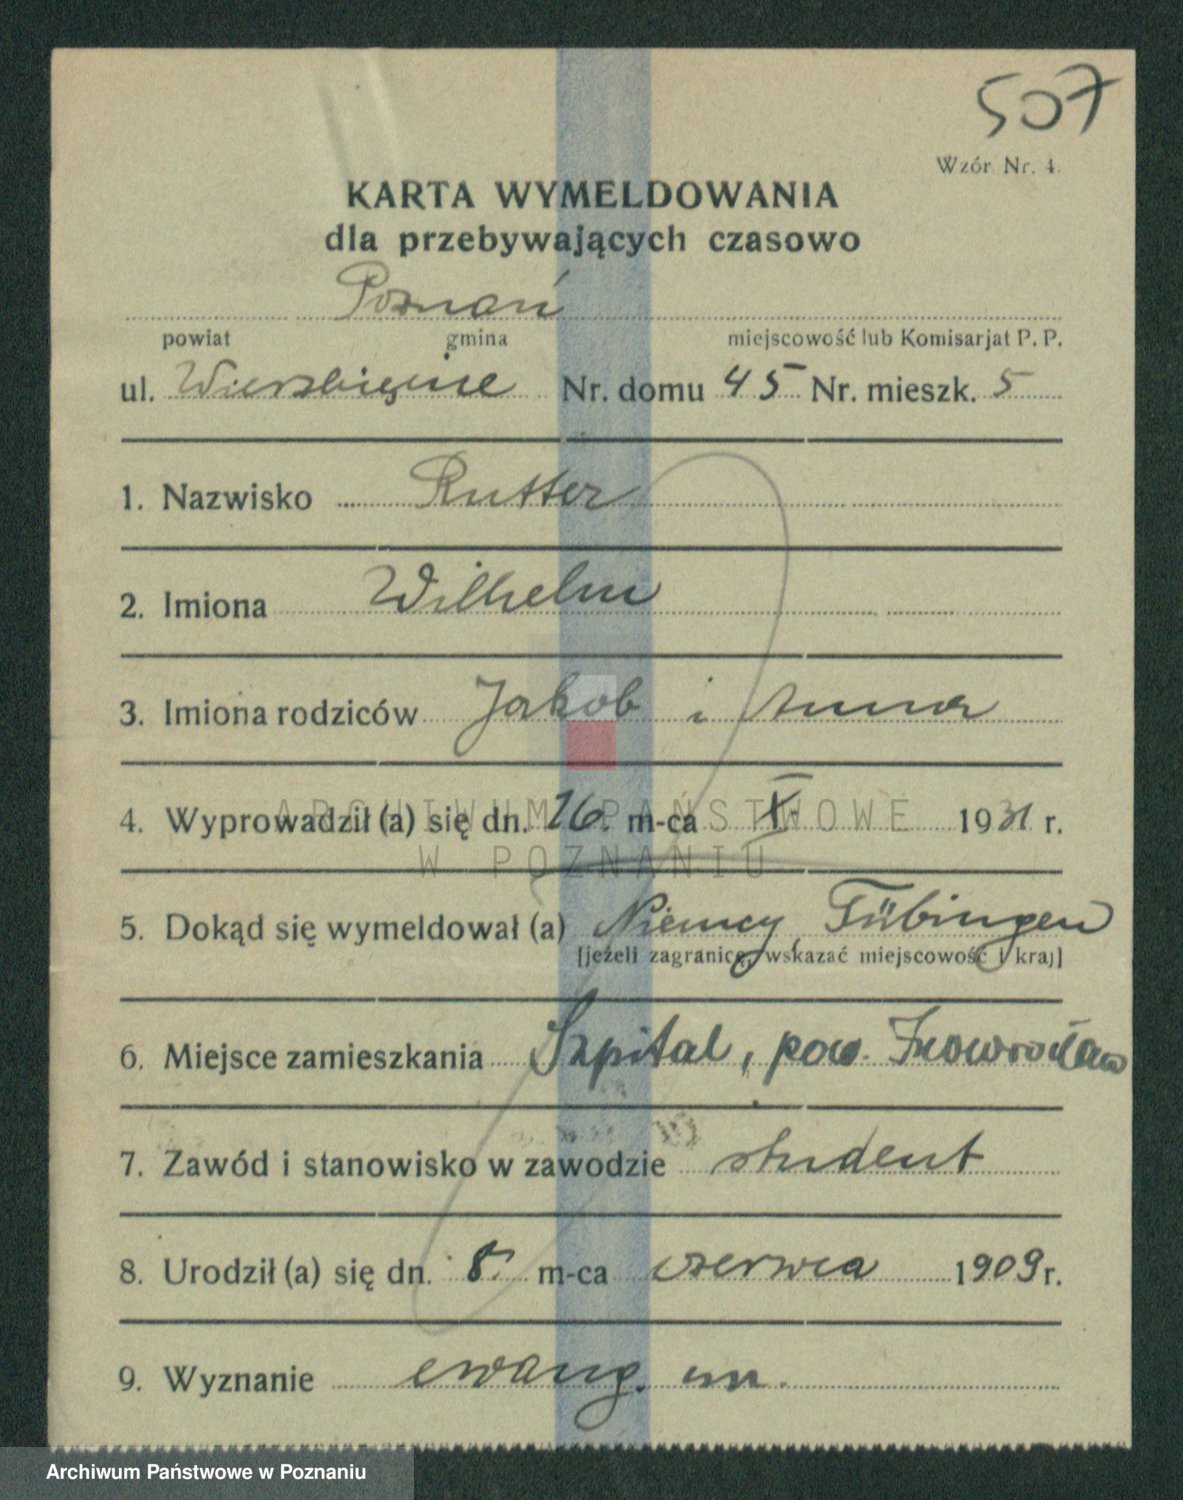 507
Wzór Nr. 4.
KARTA WYMELDOWANIA
dla przebywających czasowo
Poznań
powiat gmina miejscowość lub Komisarjat P. P.
ul. Wierzbięcice Nr. domu 45 Nr. mieszk. 5
1. Nazwisko Rutter
2. Imiona Wilhelm
3. Imiona rodziców Jakob i Anna
4. Wyprowadził (a) się dn. 26. m-ca X. 1931 r.
ARCHIWUM PAŃSTWOWE
W POZNANIU
5. Dokąd się wymeldował (a) Niemcy, Tübingen
[jeżeli zagranicę, wskazać miejscowość i kraj]
6. Miejsce zamieszkania Szpital, pow. Inowrocław
7. Zawód i stanowisko w zawodzie student
8. Urodził (a) się dn. 8. m-ca czerwca 1909 r.
9. Wyznanie ewang. un.
Archiwum Państwowe w Poznaniu